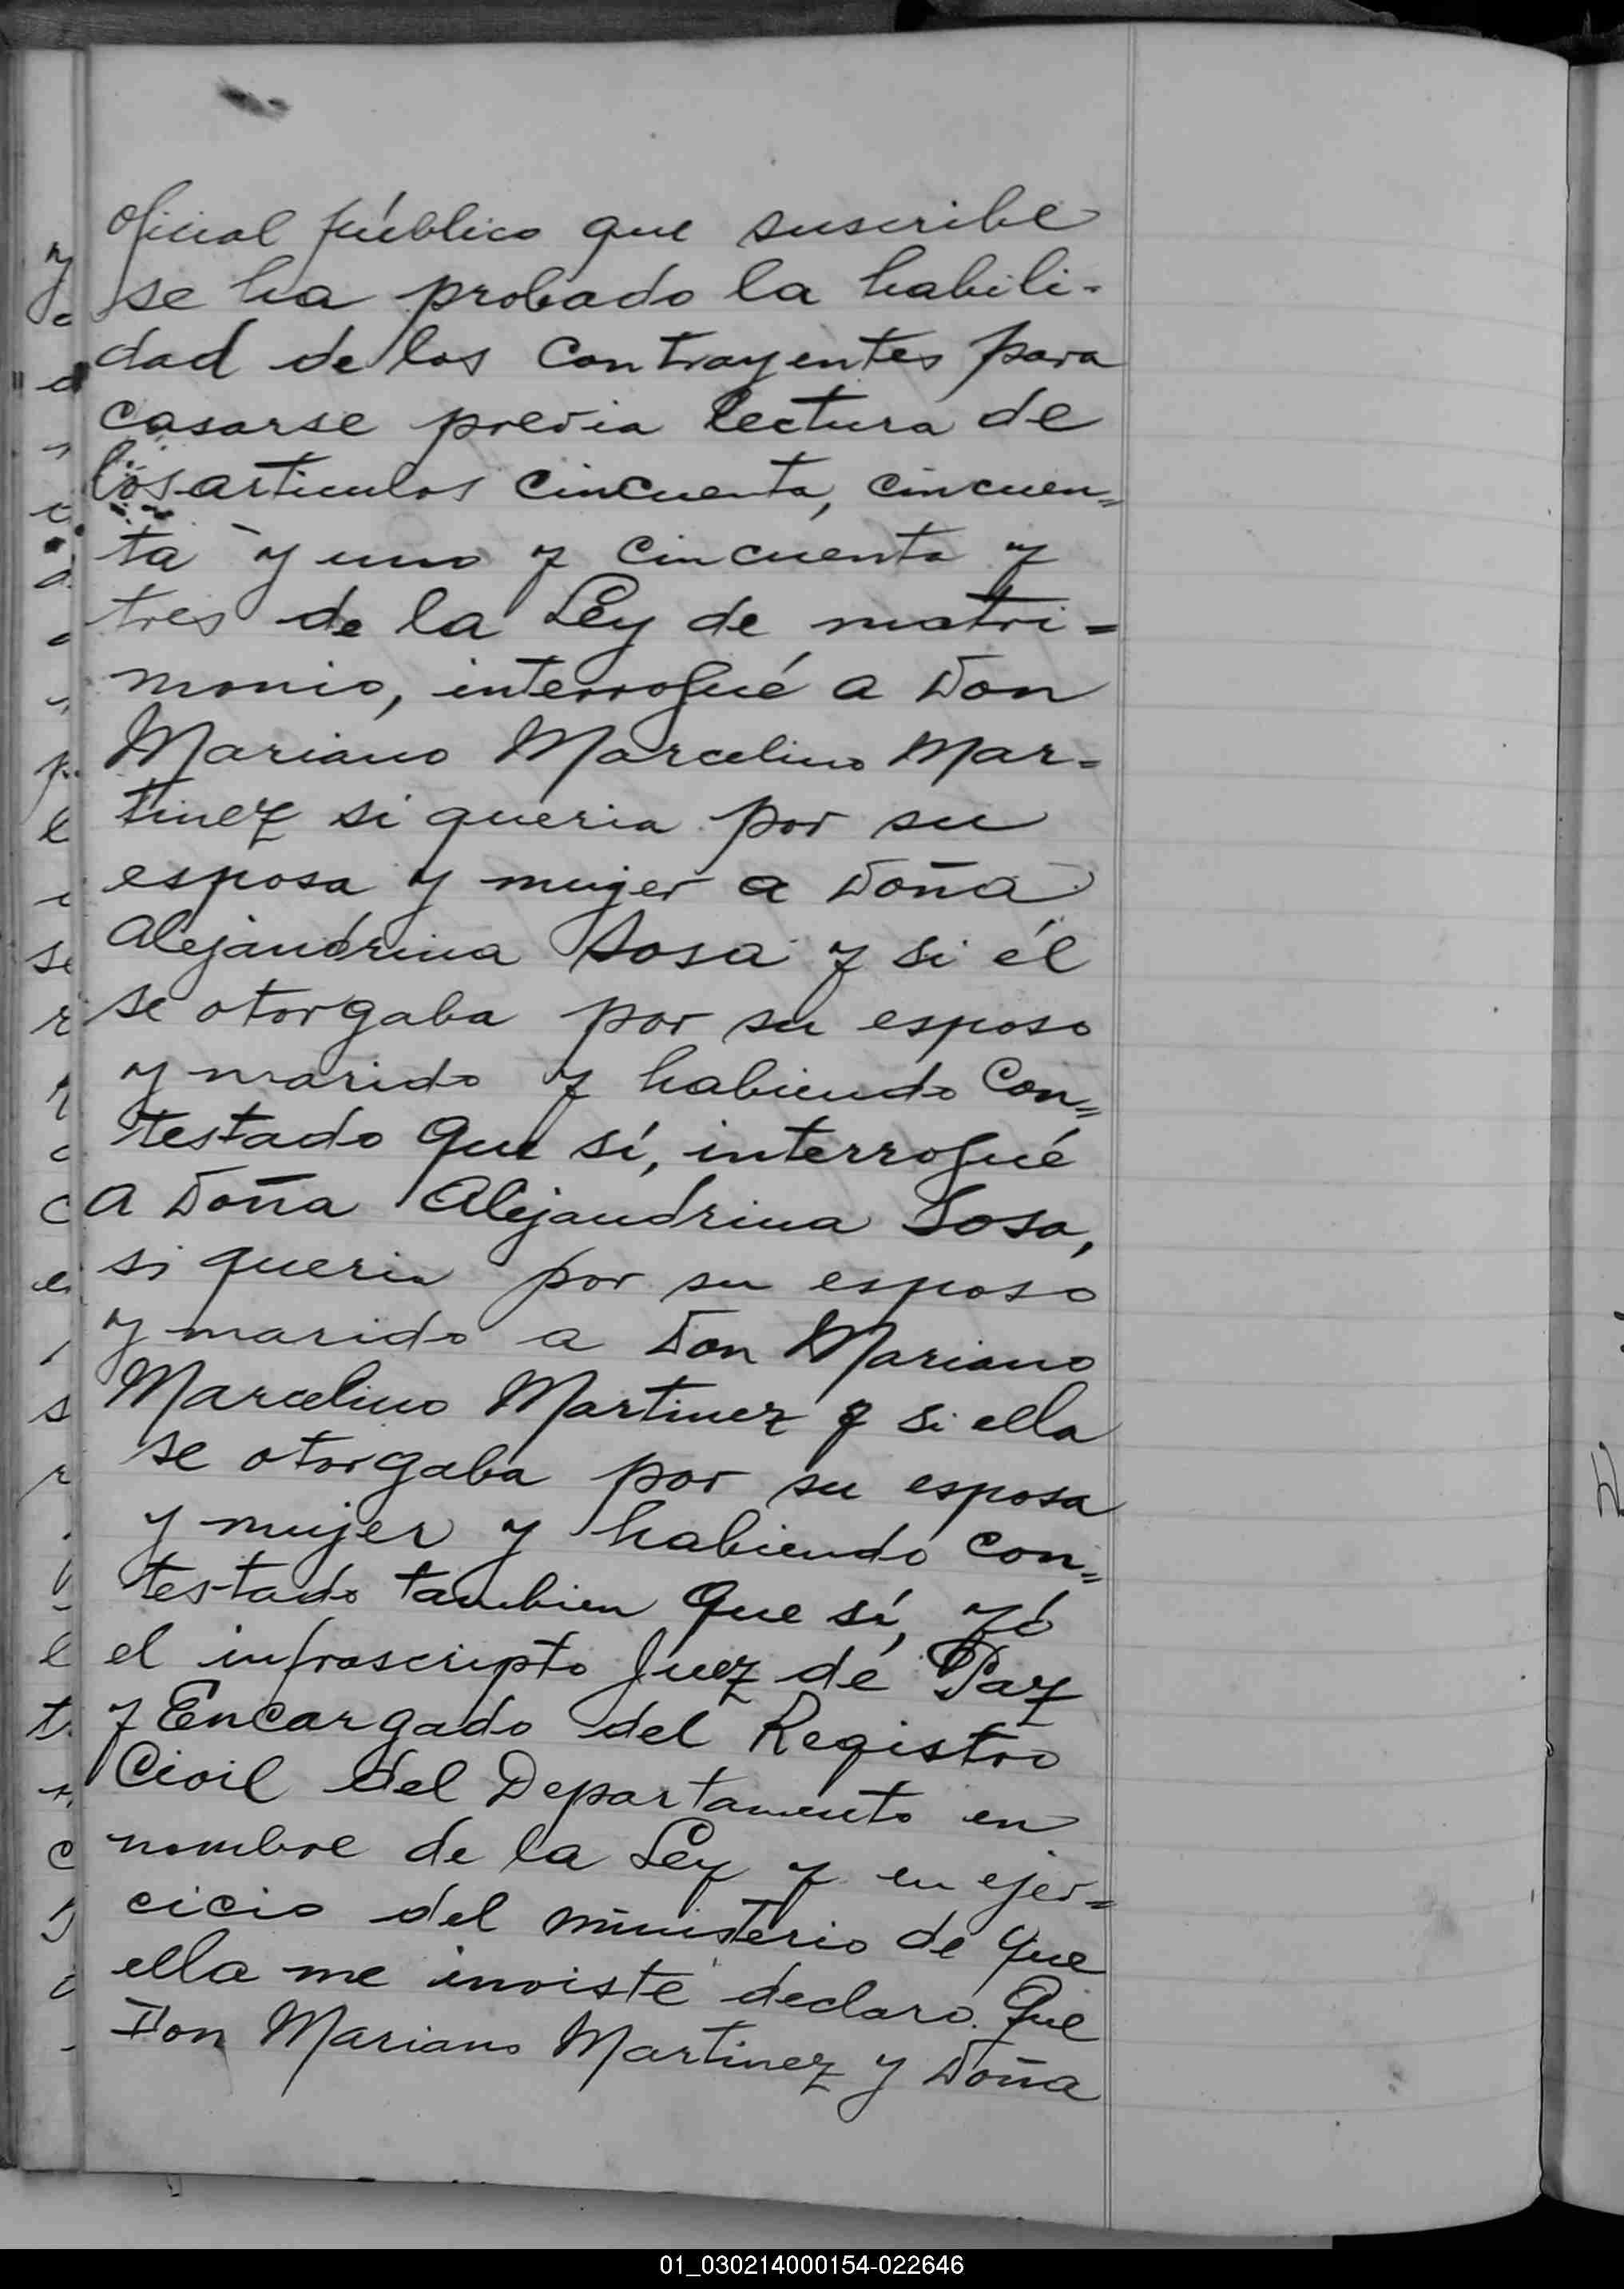 oficial público que suscribe
se ha probado la habili-
dad de los Contrayentes para
casarse previa lectura de
los articulos cincuenta, cincuen=
ta y uno y cincuenta y
tres de la Ley de matri=
monio, interrogué a Don
Mariano Marcelino Mar=
tinez si queria por su
esposa y mujer a Doña
Alejandrina Sosa y si él
se otorgaba por su esposo
y marido y habiendo Con=
testado que sí, interrogué
a Doña Alejandrina Sosa,
si queria por su esposo
y marido a Don Mariano
Marcelino Martinez y si ella
se otorgaba por su esposa
y mujer y habiendo con=
testado tambien que sí, yó
el infrascripto Juez de Paz
y Encargado del Registro
Civil del Departamento en
nombre de la Ley y en ejer=
cicio del ministerio de que
ella me inviste declaro. Que
Don Mariano Martinez y Doña
01_030214000154-022646